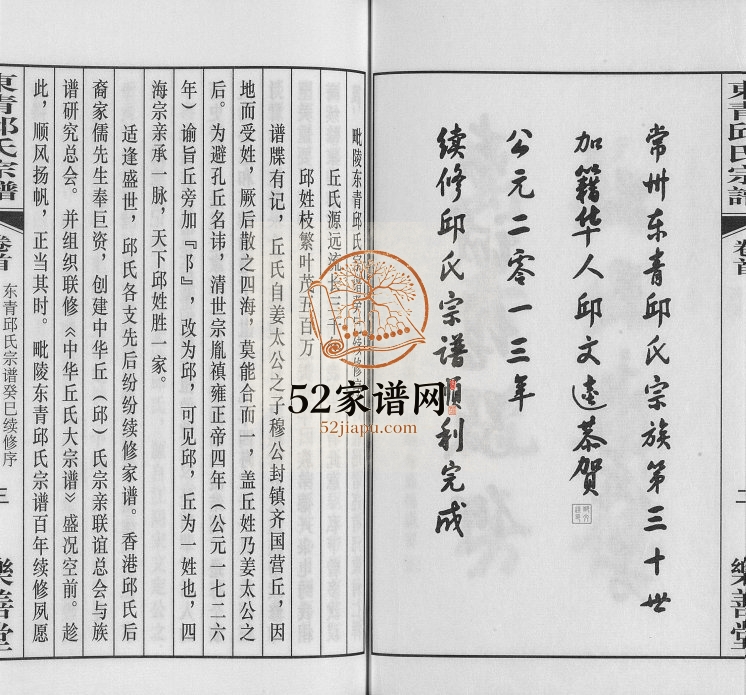 東青邱氏宗譜
卷首
二
樂善堂
常州东青邱氏宗族第三十世
加籍华人邱文远恭贺
公元二零一三年
续修邱氏宗谱顺利完成
毗陵东青邱氏宗谱 续修序
丘氏源远流长三千
邱姓枝繁叶茂五百万
谱牒有记，丘氏自姜太公之子穆公封镇齐国营丘，因
地而受姓，厥后散之四海，莫能合而一，盖丘姓乃姜太公之
后。为避孔丘名讳，清世宗胤禛雍正帝四年（公元一七二六
年）谕旨丘旁加『阝』，改为邱，可见邱，丘为一姓也，四
海宗亲承一脉，天下邱姓胜一家。
适逢盛世，邱氏各支先后纷纷续修家谱。香港邱氏后
裔家儒先生奉巨资，创建中华丘（邱）氏宗亲联谊总会与族
谱研究总会。并组织联修《中华丘氏大宗谱》盛况空前。趁
此，顺风扬帆，正当其时。毗陵东青邱氏宗谱百年续修夙愿
東青邱氏宗譜
卷首
东青邱氏宗谱癸巳续修序
三
樂善堂
52家谱网
52jiapu.com